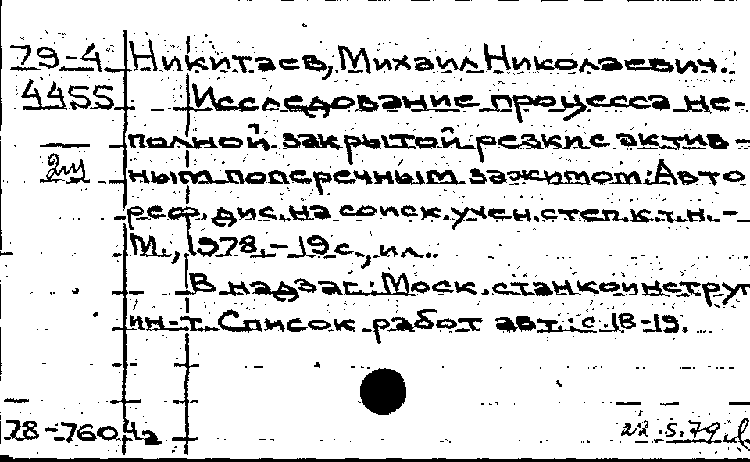 79-4 Никитаев, Михаил Николаевич.
4455 Исследование процесса не-
полной закрытой резки с актив-
2ш ным поперечным зажимом: Авто
реф. дис. на соиск. учен. степ. к.т.н. -
М., 1978. - 19 с., ил..
В надзаг.: Моск. станкоинструм
ин-т. Список работ авт.: с. 18-19.
78-76042
22.5.79